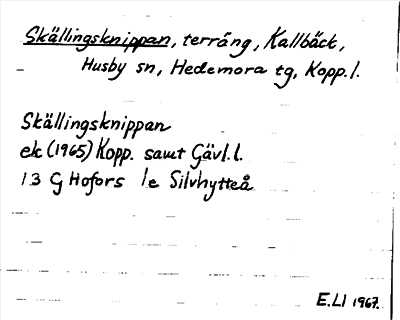 Skällingsknippan, terräng, Kallbäck,
Husby sn, Hedemora tg, Kopp.l.
Skällingsknippan
ek (1965) Kopp. samt Gävl.l.
13 G Hofors 1e Silvhytteå
E.Ll 1967.